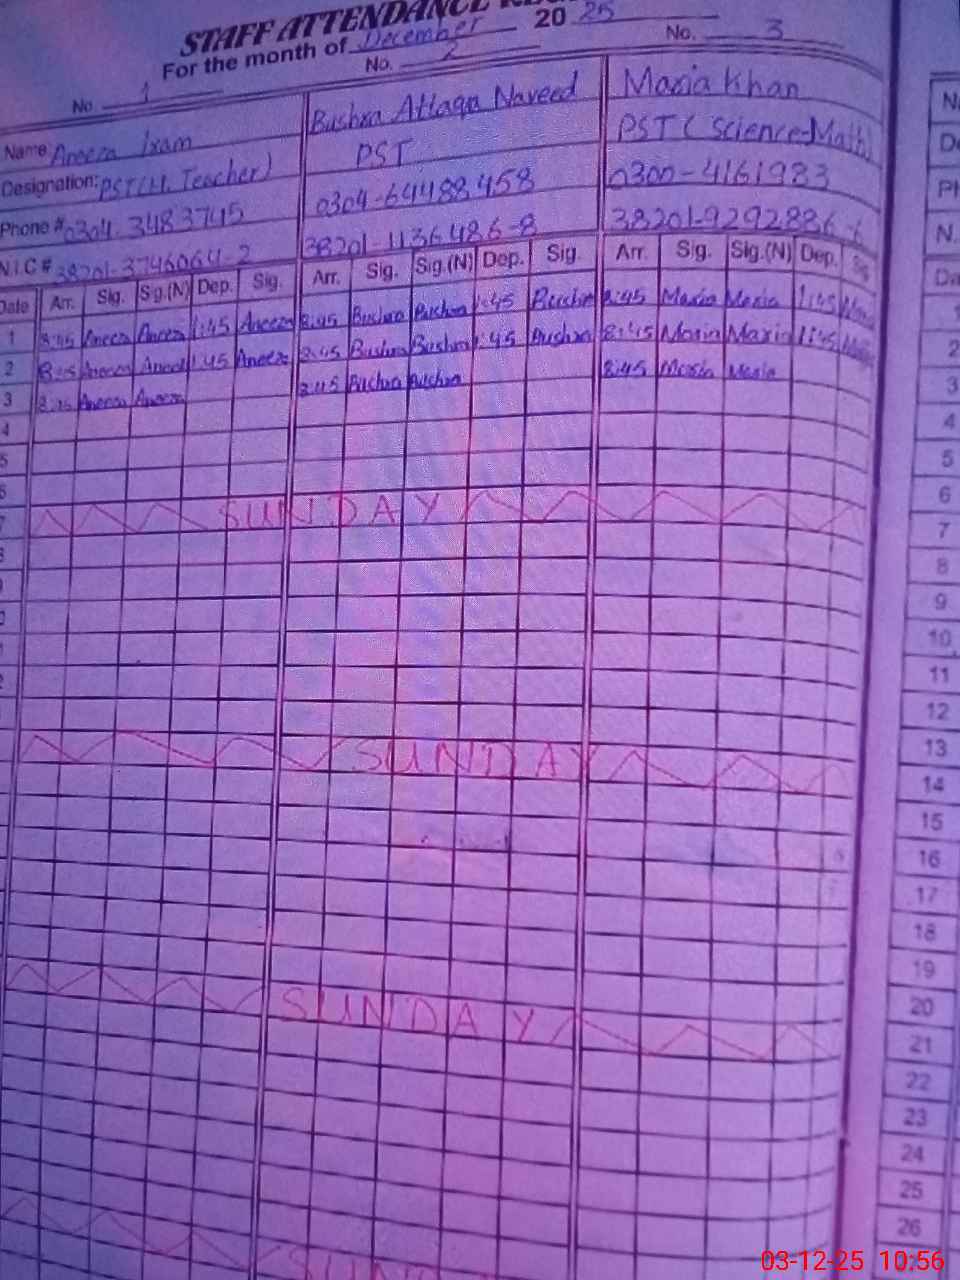 STAFF ATTENDANCE
For the month of December 2025
No. 1 No. 2 No. 3
Name: Aneeza Iram Bushra Atlaqa Naveed Maria Khan
Designation: PST(H. Teacher) PST PST (Science-Math)
Phone # 0304-3483745 0304-64488458 0300-4161983
N.I.C # 38201-3746064-2 38201-1136486-8 38201-9292886-6
Date Arr. Sig. Sig.(N) Dep. Sig. Arr. Sig. Sig.(N) Dep. Sig. Arr. Sig. Sig.(N) Dep. Sig.
1 8:45 Aneeza Aneeza 1:45 Aneeza 8:45 Bushra Bushra 1:45 Bushra 8:45 Maria Maria 1:45 Maria
2 8:45 Aneeza Aneeza 1:45 Aneeza 8:45 Bushra Bushra 1:45 Bushra 8:45 Maria Maria 1:45 Maria
3 8:45 Aneeza Aneeza 8:45 Bushra Bushra 8:45 Maria Maria
4
5
6
7 SUNDAY
SUNDAY
SUNDAY
SUND
N.
Da
1
2
3
4
5
6
7
8
9
10
11
12
13
14
15
16
17
18
19
20
21
22
23
24
25
26
03-12-25 10:56